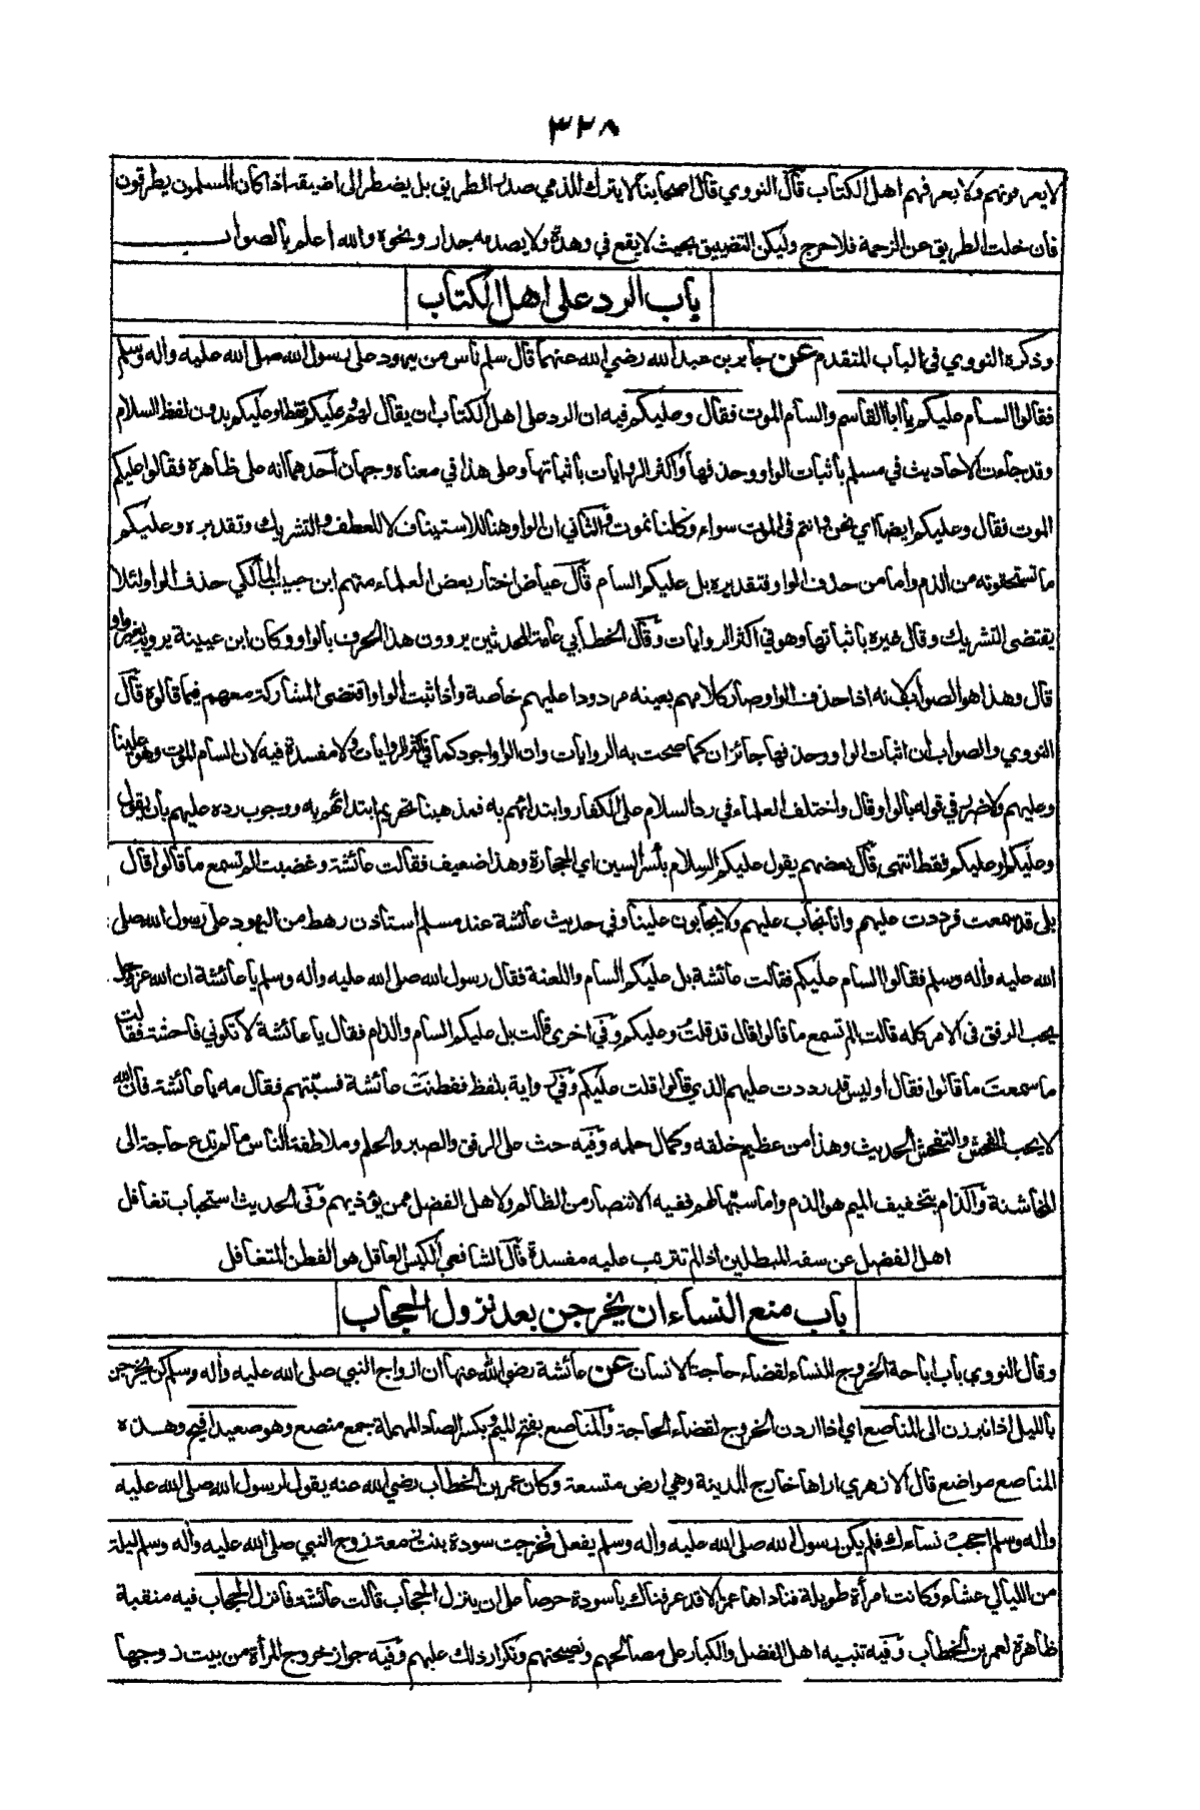 ٣٢٨
لا يعرفونهم ولا يعرفهم اهل الكتاب قال النووي قال اصحابنا لا يترك للذمي صدر الطريق بل يضطر الى اضيقه اذا كان المسلمون يطرقون
فان خلت الطريق عن الزحمة فلا حرج وليكن التضييق بحيث لا يقع في وهدة ولا يصدمه جدار ونحوه والله اعلم بالصواب
باب الرد على اهل الكتاب
وذكره النووي فى الباب المتقدم عن جابر بن عبد الله رضي الله عنهما قال سلم ناس من يهود على رسول الله صلى الله عليه واله وسلم
فقالوا السام عليكم يا ابا القاسم والسام الموت فقال وعليكم فيه ان الرد على اهل الكتاب ان يقال لهم وعليكم فقط او عليكم بدون لفظ السلام
وقد جاءت الاحاديث في مسلم باثبات الواو وحذفها واكثر الروايات باثباتها وعلى هذا في معناه وجهان احدهما انه على ظاهره فقالوا عليكم
الموت فقال وعليكم ايضا اي نحن وانتم فى الموت سواء وكلنا نموت والثاني ان الواو هنا للاستيناف لا للعطف والتشريك وتقديره وعليكم
ما تستحقونه من الذم واما من حذف الواو فتقديره بل عليكم السام قال عياض اختار بعض العلماء منهم ابن حبيب المالكي حذف الواو لئلا
يقتضى التشريك وقال غيره باثباتها وهو في اكثر الروايات وقال الخطابي عامة المحدثين يروون هذا الحرف بالواو وكان ابن عيينة يرويه بغير واو
قال وهذا هو الصواب لانه اذا حذف الواو صار كلامهم بعينه مردودا عليهم خاصة واذا ثبت الواو اقتضى المشاركة معهم فيما قالوه قال
النووي والصواب ان اثبات الواو وحذفها جائزان كما صحت به الروايات وان الواو اجود كما في اكثر الروايات ولا مفسدة فيه لان السام الموت وهو علينا
وعليهم ولا ضرر في قوله بالواو قال واختلف العلماء في رد السلام على الكفار وابتدائهم به فمذهبنا تحريم ابتدائهم به ووجوب رده عليهم بان يقول
وعليكم او عليكم فقط انتهى قال بعضهم يقول عليكم السلام بكسر السين اي الحجارة وهذا ضعيف فقالت عائشة وغضبت الم تسمع ما قالوا قال
بلى قد سمعت فرددت عليهم وانا نجاب عليهم ولا يجابون علينا وفي حديث عائشة عند مسلم استاذن رهط من اليهود على رسول الله صلى
الله عليه واله وسلم فقالوا السام عليكم فقالت عائشة بل عليكم السام واللعنة فقال رسول الله صلى الله عليه واله وسلم يا عائشة ان الله عز وجل
يحب الرفق فى الامر كله قالت الم تسمع ما قالوا قال قد قلت وعليكم وفي اخرى قالت بل عليكم السام والذام فقال يا عائشة لا تكوني فاحشة فقالت
ما سمعت ما قالوا فقال اوليس قد رددت عليهم الذي قالوا قلت عليكم وفي رواية بلفظ ففطنت عائشة فسبتهم فقال مه يا عائشة فان الله
لا يحب الفحش والتفحش الحديث وهذا من عظيم خلقه وكمال حلمه وفيه حث على الرفق والصبر والحلم وملاطفة الناس ما لم تدع حاجة الى
المخاشنة والذام بتخفيف الميم هو الذم واما سبّها لهم ففيه الانتصار من الظالم ولاهل الفضل ممن يؤذيهم وفى الحديث استحباب تغافل
اهل الفضل عن سفه المبطلين اذا لم تترتب عليه مفسدة قال الشافعي الكيس العاقل هو الفطن المتغافل
باب منع النساء ان يخرجن بعد نزول الحجاب
وقال النووي باب اباحة الخروج للنساء لقضاء حاجة الانسان عن عائشة رضي الله عنها ان ازواج النبي صلى الله عليه واله وسلم كن يخرجن
بالليل اذا تبرزن الى المناصع اي اذا اردن الخروج لقضاء الحاجة والمناصع بفتح الميم وبكسر الصاد المهملة جمع منصع وهو صعيد افيح وهذه
المناصع مواضع قال الازهري اراها خارج المدينة وهي ارض متسعة وكان عمر بن الخطاب رضي الله عنه يقول لرسول الله صلى الله عليه
واله وسلم احجب نساءك فلم يكن رسول الله صلى الله عليه واله وسلم يفعل فخرجت سودة بنت زمعة زوج النبي صلى الله عليه واله وسلم ليلة
من الليالي عشاء وكانت امرأة طويلة فناداها عمر الا قد عرفناك يا سودة حرصا على ان ينزل الحجاب قالت عائشة فانزل الحجاب فيه منقبة
ظاهرة لعمر بن الخطاب وفيه تنبيه اهل الفضل والكبار على مصالحهم ونصيحتهم وتكرار ذلك عليهم وفيه جواز خروج المرأة من بيت زوجها